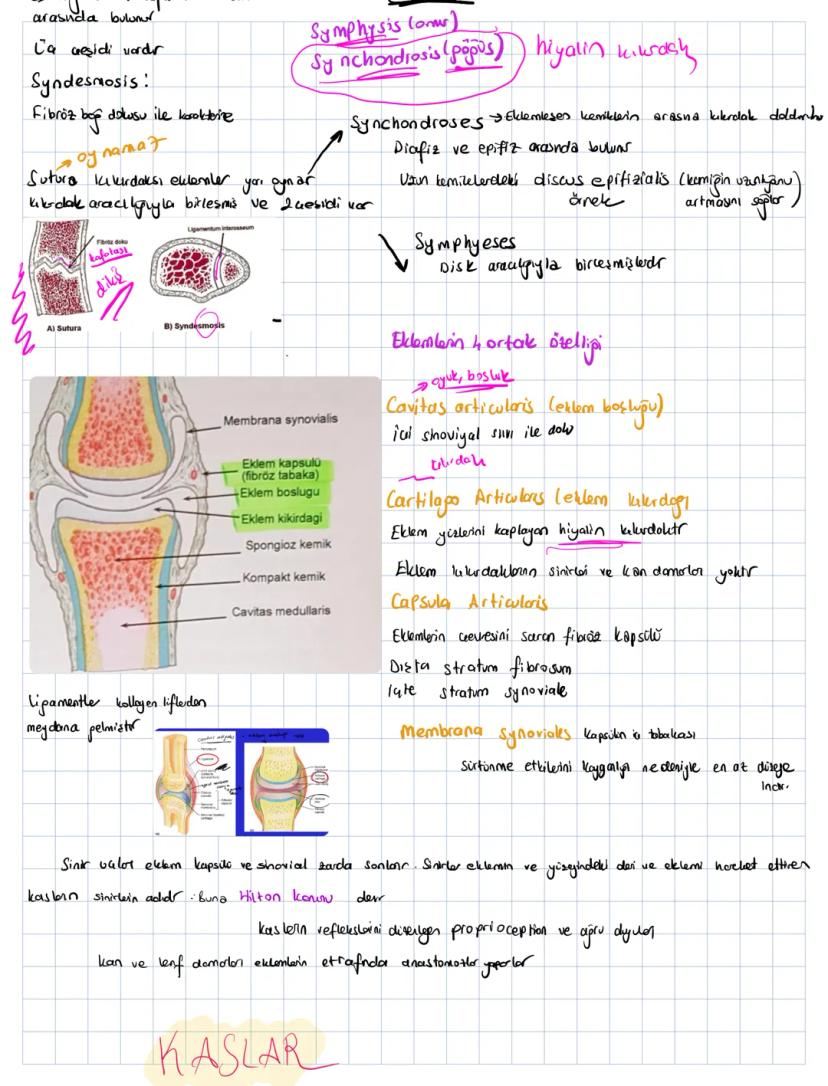 arasında bulunur
Üç çeşidi vardır
Syndesmosis:
Fibröz bağ dokusu ile karakterize
oynamaz
Sutura kıkırdaksı eklemler yarı oynar
kıkırdak aracılığıyla birleşmiş ve 2 çeşidi var
Fibröz doku
kafatası
dikiş
A) Sutura
Ligamentum interosseum
B) Syndesmosis
Symphysis (omur)
Synchondrosis (göğüs)
hiyalin kıkırdak
Synchondroses → Eklemleşen kemiklerin arasına kıkırdak doldurulur
Diafiz ve epifiz arasında bulunur
Uzun kemiklerdeki discus epifizialis (kemiğin uzunluğunu
örnek artmasını sağlar)
Symphyeses
Disk aracılığıyla birleşmişlerdir
Eklemlerin 4 ortak özelliği
oyuk, boşluk
Cavitas articularis (eklem boşluğu)
içi sinoviyal sıvı ile dolu
kıkırdak
Cartilago Articularis (eklem kıkırdağı
Eklem yüzlerini kaplayan hiyalin kıkırdaktır
Eklem kıkırdaklarının sinirleri ve kan damarları yoktur
Capsula Articularis
Eklemlerin çevresini saran fibröz kapsülü
Dışta stratum fibrosum
İçte stratum synoviale
Membrana synoviales kapsülün iç tabakası
Sürtünme etkilerini kayganlığı nedeniyle en az düzeye
indir.
Membrana synovialis
Eklem kapsülü
(fibröz tabaka)
Eklem boslugu
Eklem kikirdagi
Spongioz kemik
Kompakt kemik
Cavitas medullaris
Ligamentler kollagen liflerden
meydana gelmiştir
Sinir uçları eklem kapsülü ve sinovial zarda sonlanır. Sinirler eklemin ve yüzeyindeki deri ve eklemi hareket ettiren
kasların sinirlerin dalıdır. Buna Hilton kanunu denir
kasların reflekslerini düzenleyen proprioception ve ağrı duyuları
kan ve lenf damarları eklemlerin etrafında anastomozlar yaparlar
KASLAR